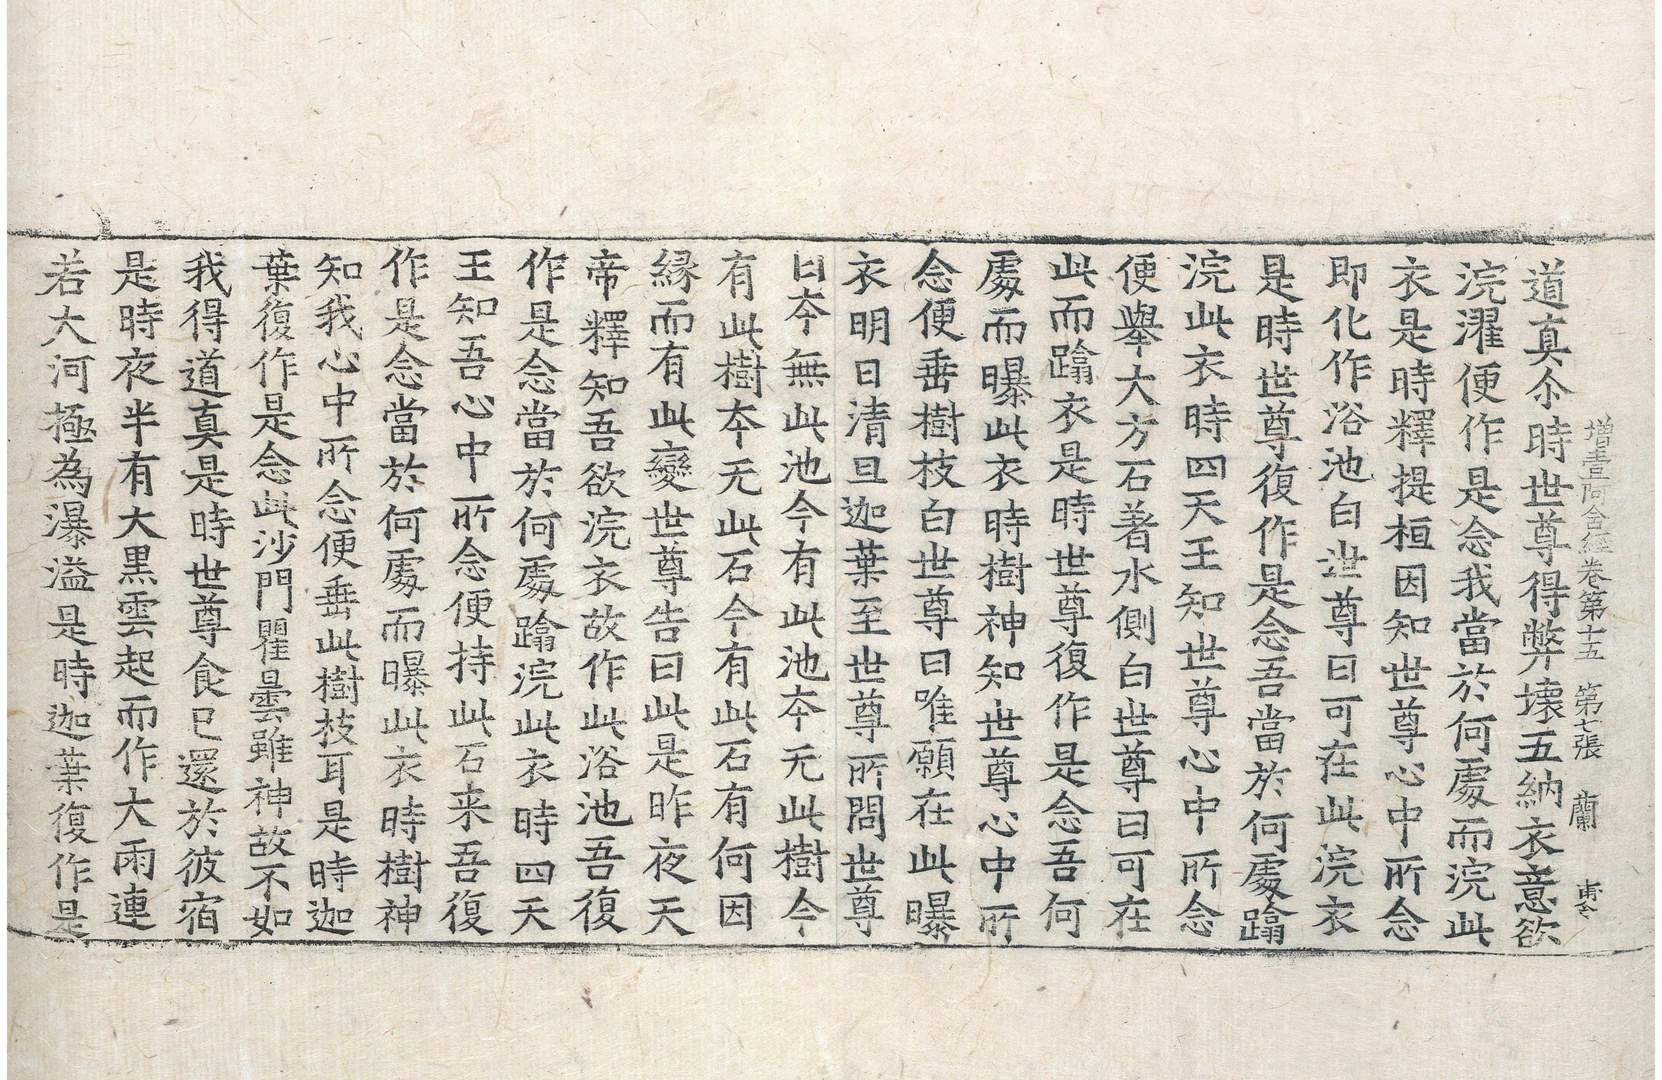 增壹阿含經卷第十五 第七張 蘭
道真尒時世尊得弊壞五納衣意欲
浣濯便作是念我當於何處而浣此
衣是時釋提桓因知世尊心中所念
即化作浴池白世尊曰可在此浣衣
是時世尊復作是念吾當於何處蹹
浣此衣時四天王知世尊心中所念
便舉大方石著水側白世尊曰可在
此而蹹衣是時世尊復作是念吾何
處而曝此衣時樹神知世尊心中所
念便垂樹枝白世尊曰唯願在此曝
衣明日清旦迦葉至世尊所問世尊
曰夲無此池今有此池夲无此樹今
有此樹夲无此石今有此石有何因
緣而有此變世尊告曰此是昨夜天
帝釋知吾欲浣衣故作此浴池吾復
作是念當於何處蹹浣此衣時四天
王知吾心中所念便持此石来吾復
作是念當於何處而曝此衣時樹神
知我心中所念便垂此樹枝耳是時迦
葉復作是念此沙門瞿曇雖神故不如
我得道真是時世尊食已還於彼宿
是時夜半有大黑雲起而作大雨連
若大河極為瀑溢是時迦葉復作是